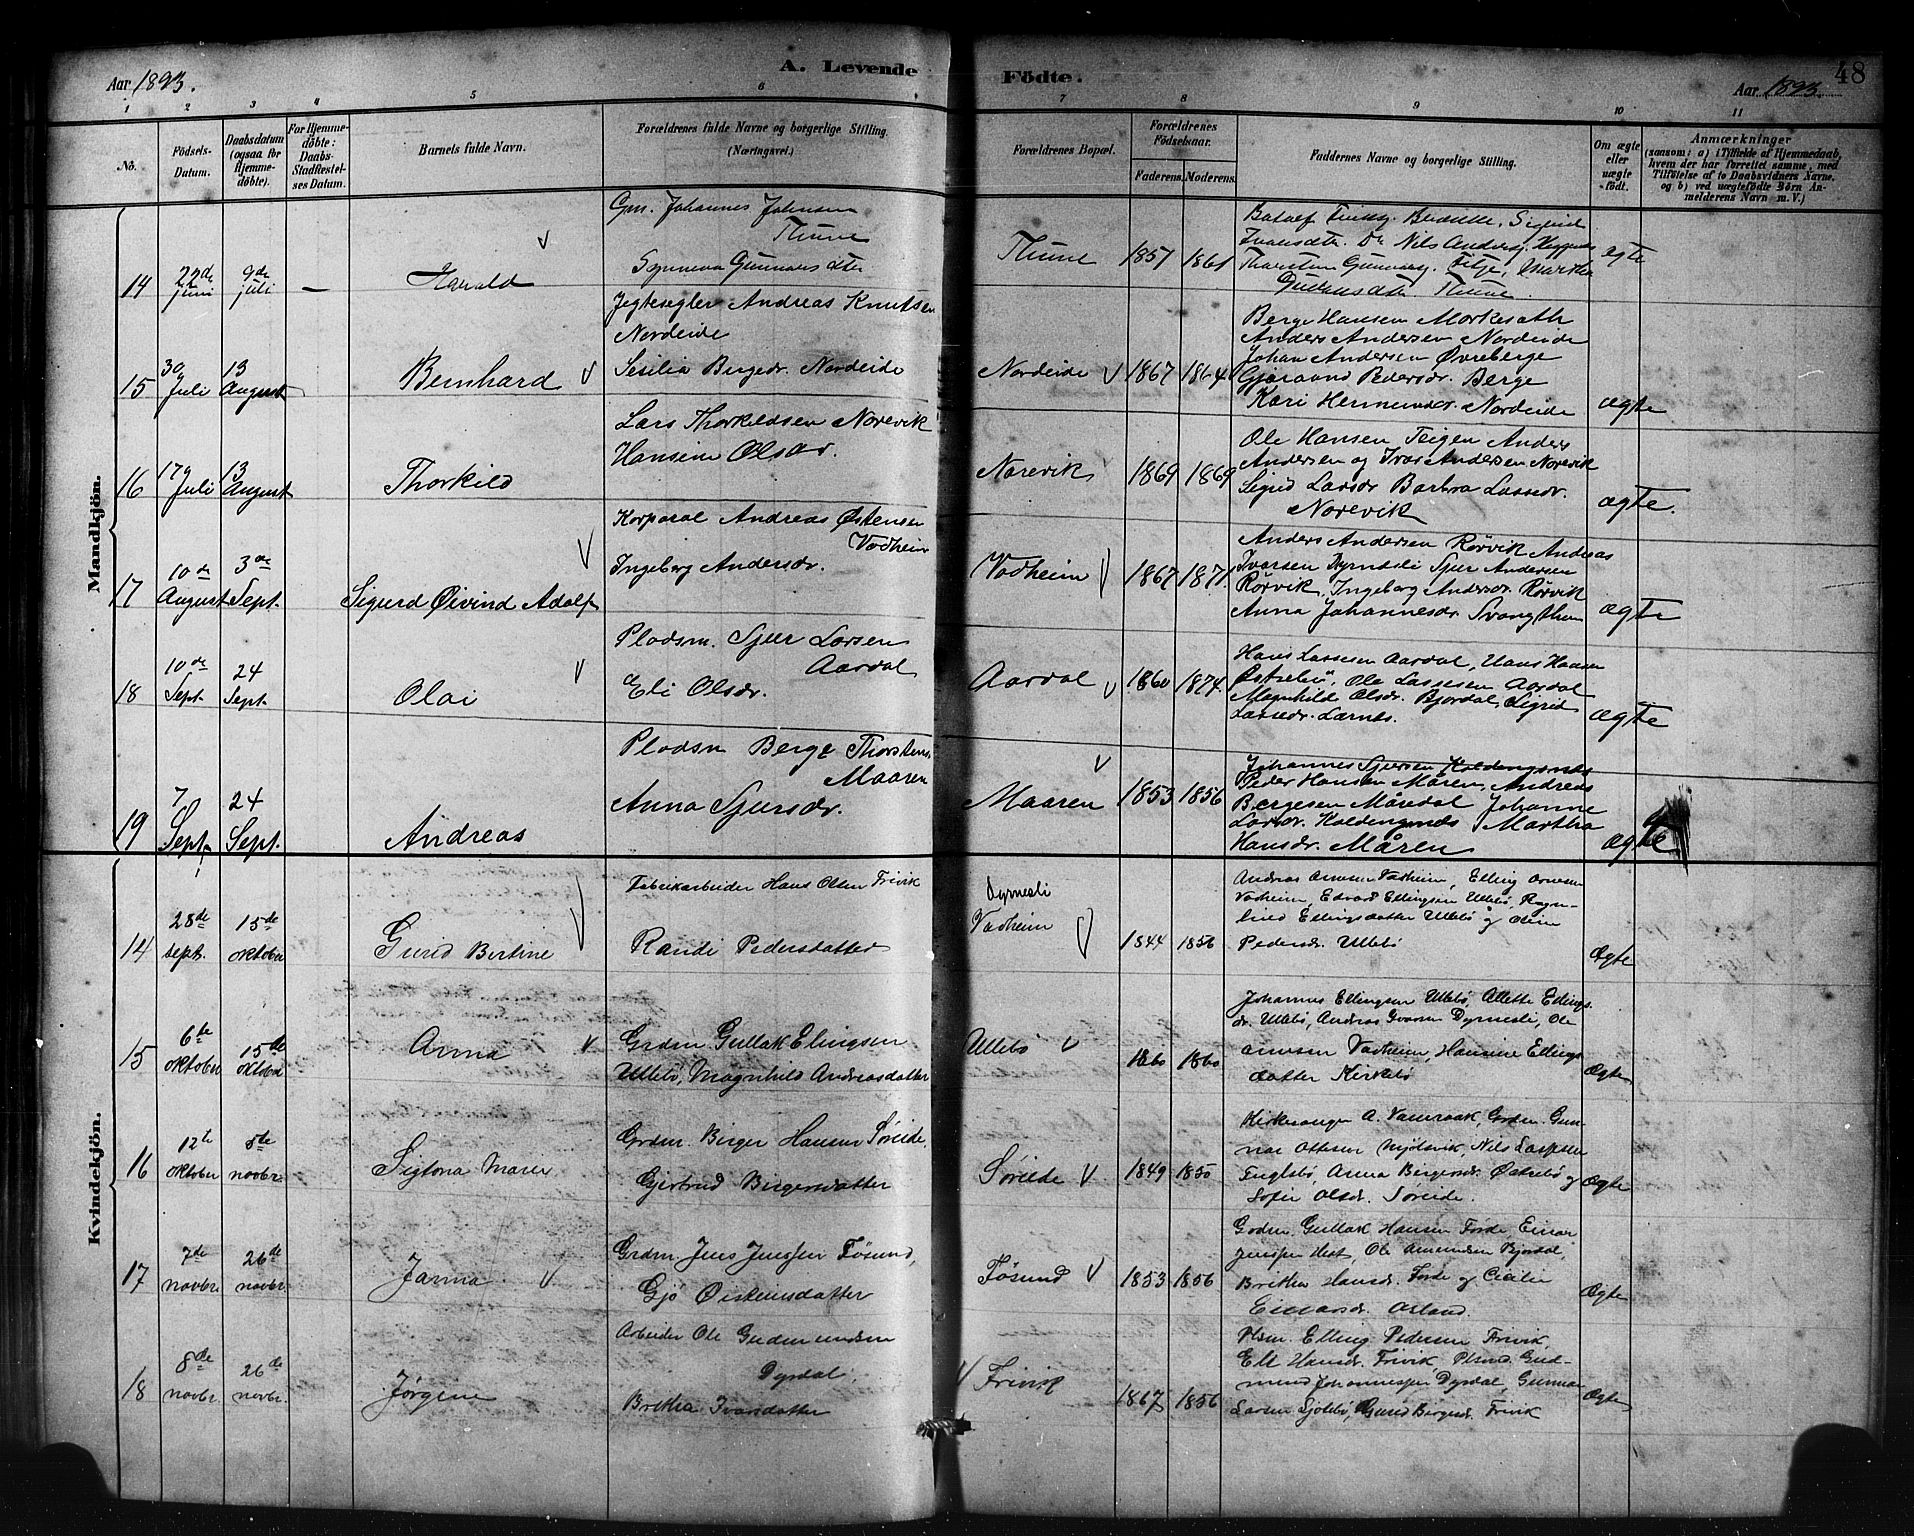 Aar 1893.
A. Levende
Födte.
Aar 1893.
48
1 2 3 4 5 6 7 8 9 10 11
No.
Födsels-Datum.
Daabsdatum (ogsaa for Hjemmedöbte).
For Hjemmedöbte: Daabs-Stadfæstelses Datum.
Barnets fulde Navn.
Forældrenes fulde Navne og borgerlige Stilling.
(Næringsvei.)
Forældrenes Bopæl.
Forældrenes Födselsaar.
Faderens. Moderens.
Faddernes Navne og borgerlige Stilling.
Om ægte eller uægte födt.
Anmærkninger
(saasom: a) i Tilfælde af Hjemmedaab, hvem der har forrettet samme, med Tilföielse af to Daabsvidners Navne. og b) ved uægtefödte Börn Anmelderens Navn m. V.)
Mandkjön.
14 22de juni 9de juli — Harald
Gm. Johannes Johnsen
Thune
Synneva Gunnarsdtr
Thune 1857 1861
Sigrid
Nils
Thune
ægte
15 30 Juli 13 August Bernhard
Jegtesegler Andreas Knutsen
Nordeide
Sesilia Bergedr. Nordeide
Nordeide 1867 1864
Berge Hansen Morkesath
Anders Andersen Nordeide
Johan Andersen Øvreberge
Gjøraand Pedersdr. Berge
Kari Hermundsdr. Nordeide
ægte
16 17 Juli 13 August Thorkild
Lars Thorkildsen Norevik
Hansine Olsdr.
Norevik 1869 1869
Ole Hansen Teigen Anders
Andersen og Ivar Andersen Norevik
Sigrid Larsdr. Barbra Lassedr.
Norevik
ægte.
17 10de August 3de Sept. Sigurd Øivind Adolf
Korporal Andreas Østensen
Vadheim
Ingeborg Andersdr.
Vadheim 1867 1871.
Anders Andersen Rørvik Andreas
Ivarsen Dyrndeli Sjur Andersen
Rørvik, Ingeborg Andersdr. Rørvik
Anna Johannesdr.
ægte
18 10de Sept. 24 Sept. Olai
Pladsm. Sjur Larsen
Aardal
Eli Olsdr.
Aardal 1860 1874.
Hans Lassesen Aardal, Hans Hansen
Østrebö, Ole Lassesen Aardal
Magnhild Olsdr. Bjordal, Sigrid
Lassedr. Lærnes.
ægte
19 7 Sept. 24 Sept. Andreas
Pladsm Berge Thorstens.
Maaren
Anna Sjursdr.
Maaren 1853 1856
Johannes Sjursen
Peder Hansen Måren, Andreas
Bergesen Måredal Johanne
Larsdr. Martha
Hansdr. Måren
ægte
Kvindekjön.
14 28de septr. 15de oktober Gurid Bertine
Fabrikarbeider Hans Olsen Frivik
Randi Pedersdatter
Dyrnesli
Vadheim
1844 1856
Andreas Arnesen Vadheim, Elling Arnesen
Vadheim, Edvard Ellingsen Ullebö, Ragn-
hild Ellingsdatter Ullebö og Oline
Pedersdr. Ullebö
Ægte
15 6te oktober 15de oktober Anna
Grdm Gullak Elingsen
Ullebö, Magnhild Andreasdatter
Ullebö 1860 1860
Johannes Ellingsen Ullebö, Alette Ellings-
dr. Ullebö, Andreas Ivarsen Dyrnesli, Ole
Arnesen Vadheim, Hansine Ellings
datter Kirkebö
Ægte
16 12te oktober 5te novbr. Sigtona Marie
Grdm. Birger Hansen Söreide,
Gjertrud Birgersdatter
Söreide 1849 1850
Kirkesanger A. Grdm. Gun-
nar Ottesen Nils Lassesen
Fuglebö, Anna Bergersdr. Østrebö og
Sofie Olsdr. Söreide.
Ægte
17 7de novbr. 26de novbr. Janna
Grdm. Jens Jenssen Tösund,
Gjö Øisteinsdatter
Tösund 1853 1856
Grdm. Gullak Hansen Förde, Einar
Jenssen Hest, Ole Amundsen Bjordal,
Britha Hansdr. Förde og Cicilie
Einarsdr. Åsland.
Ægte
18 8de novbr. 26de novbr. Jörgine
Arbeider Ole Gudmundsen
Dyrdal,
Britha Ivarsdatter
Frivik
1867 1856
Plsm. Elling Pedersen Frivik,
Eli Hansdr. Frivik, Plsmd. Gud-
mund Johannessen Dyrdal, Gunnar
Larsen Sjölebö, Gurid Birgersdr. Frivik
Ægte